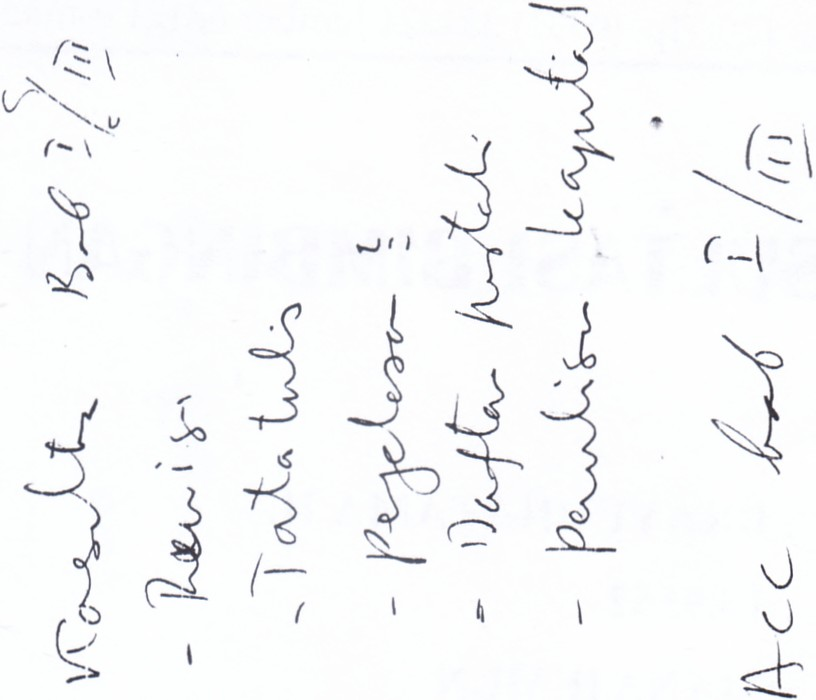 Konsultasi Bab I/III
- Revisi
- Tata tulis
- Pengelesa
- Daftar pustak
- penulisan kaputial
Acc bab I/III